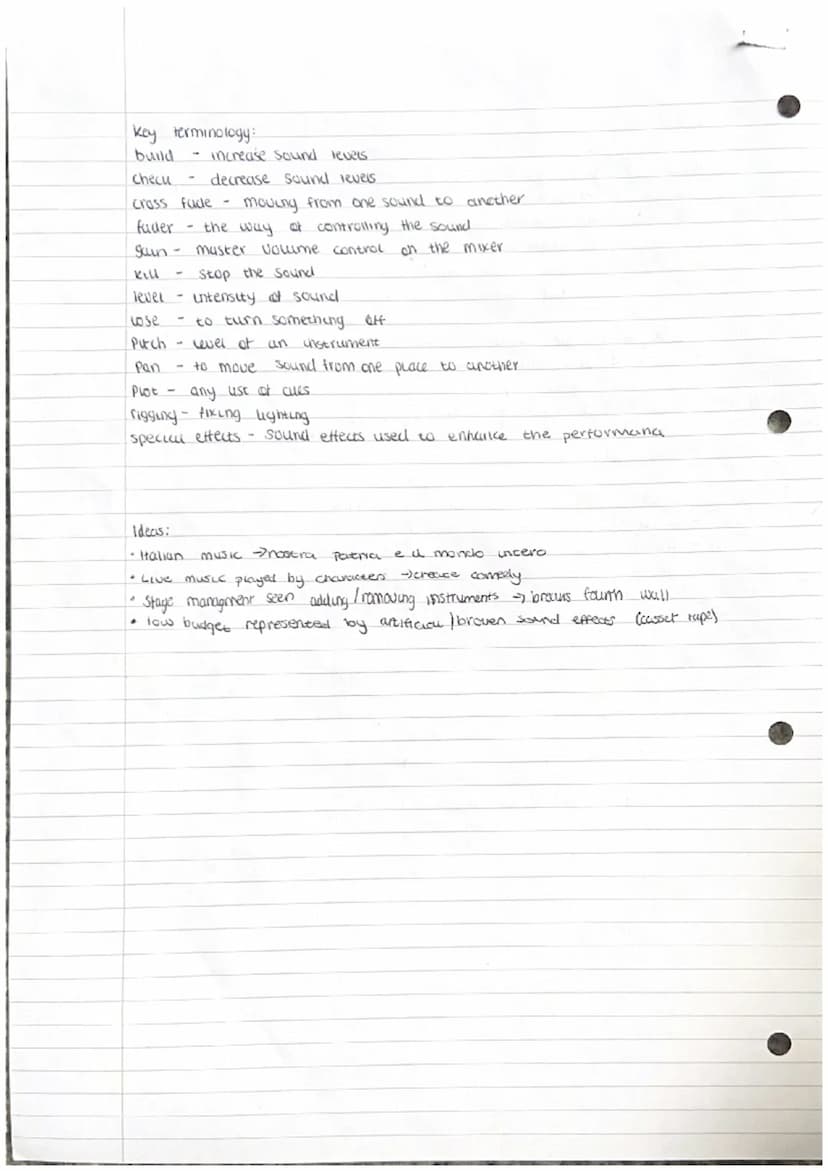 Key terminology:
build - increase sound levels
check - decrease sound levels
cross fade - moving from one sound to another
fader - the way of controlling the sound
gain - master volume control on the mixer
kill - stop the sound
level - intensity of sound
lose - to turn something off
Pitch - level of an instrument
Pan - to move sound from one place to another
Plot - any use of cues
rigging - fixing lighting
special effects - sound effects used to enhance the performance
Ideas:
• Italian music → nostra Patria e il mondo intero
• Live music played by characters → create comedy
• Stage managment seen adding/removing instruments → breaks fourth wall
• low budget represented by artificial/broken sound effects (casset tape)